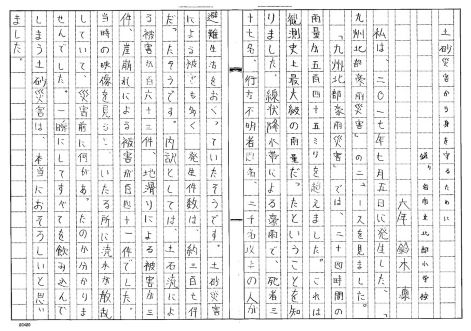 土砂災害から身を守るために
岩市立北部小学校
六年　鈴木　凛
私は、二〇一七年七月五日に発生した、
九州北部豪雨災害」のニュースを見ました。
「九州北部豪雨災害」では、二十四時間の
雨量が五百四十五ミリを超えました。これは
観測史上最大級の雨量だったということを知
りました。線状降水帯による豪雨で、死者三
十七名、行方不明者四名、二千名以上の人が
避難生活をおくっていたそうです。土砂災害
による被害はとても多く、発生件数は、約三百七件
だったそうです。内訳としては、土石流によ
る被害が百六十三件、地滑りによる被害が三
件、崖崩れによる被害が百四十一件でした。
当時の映像を見ると、いたる所に流木が散乱
していて、災害前に何があったのか分かりま
せんでした。一瞬にしてすべてを飲み込んで
しまう土砂災害は、本当におそろしいと思い
ました。